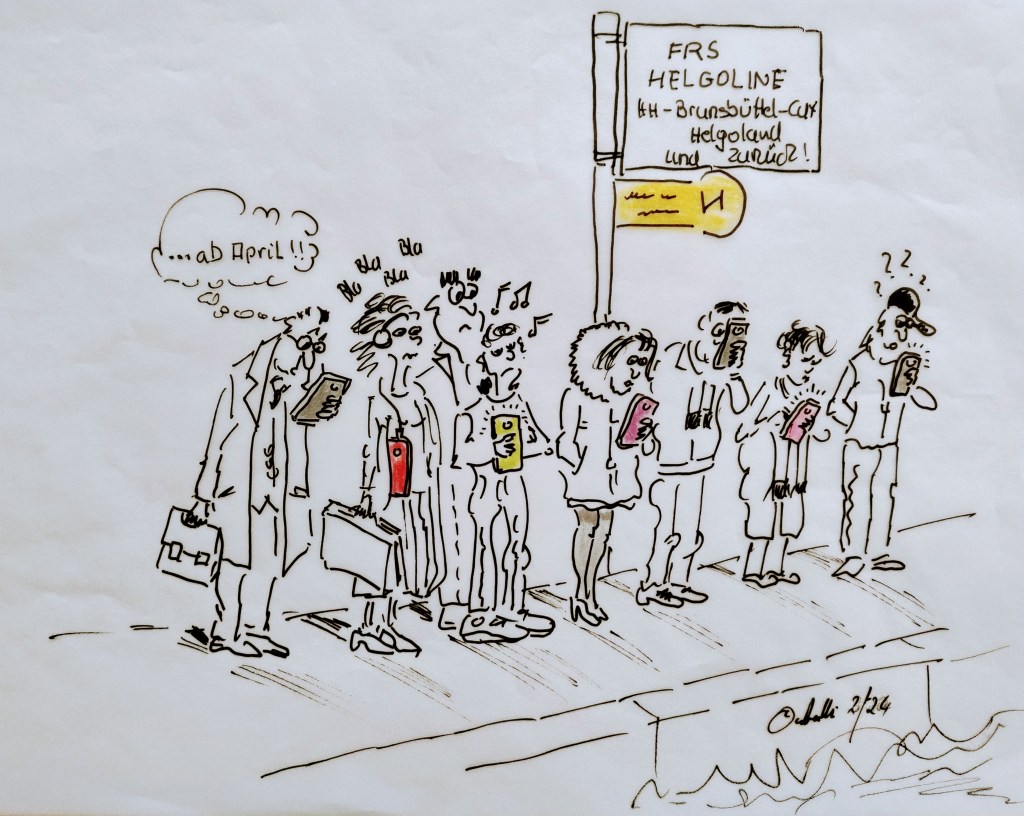 FRS
HELGOLINE
HH-Brunsbüttel-Cux
Helgoland
und zurück!
H
...ab April!!
Bla Bla Bla Bla
? ? ? ?
2/24